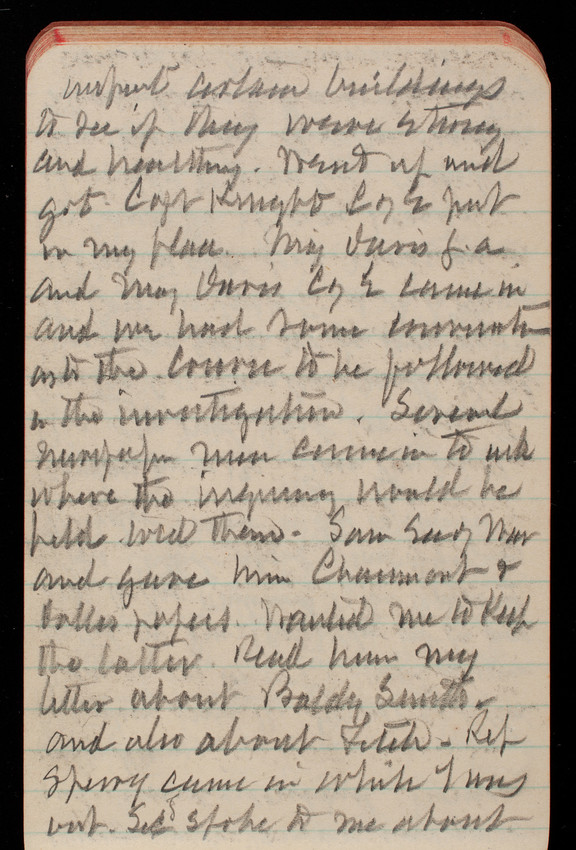 inspect certain buildings
to see if they were strong
and healthy. Went up and
got Capt Knight C of E put
in my place. Maj Davis J. a
and Maj Davis C of E came in
and we had some
as to the course to be followed
in the investigation. Several
newspaper men came in to ask
where the inquiry would be
held told them - Saw Secy War
and gave him Chaumont &
papers. Wanted me to keep
the latter. Read him my
letter about Baldy Smith -
and also about - Rep
Sperry came in while I was
out. Sec spoke to me about